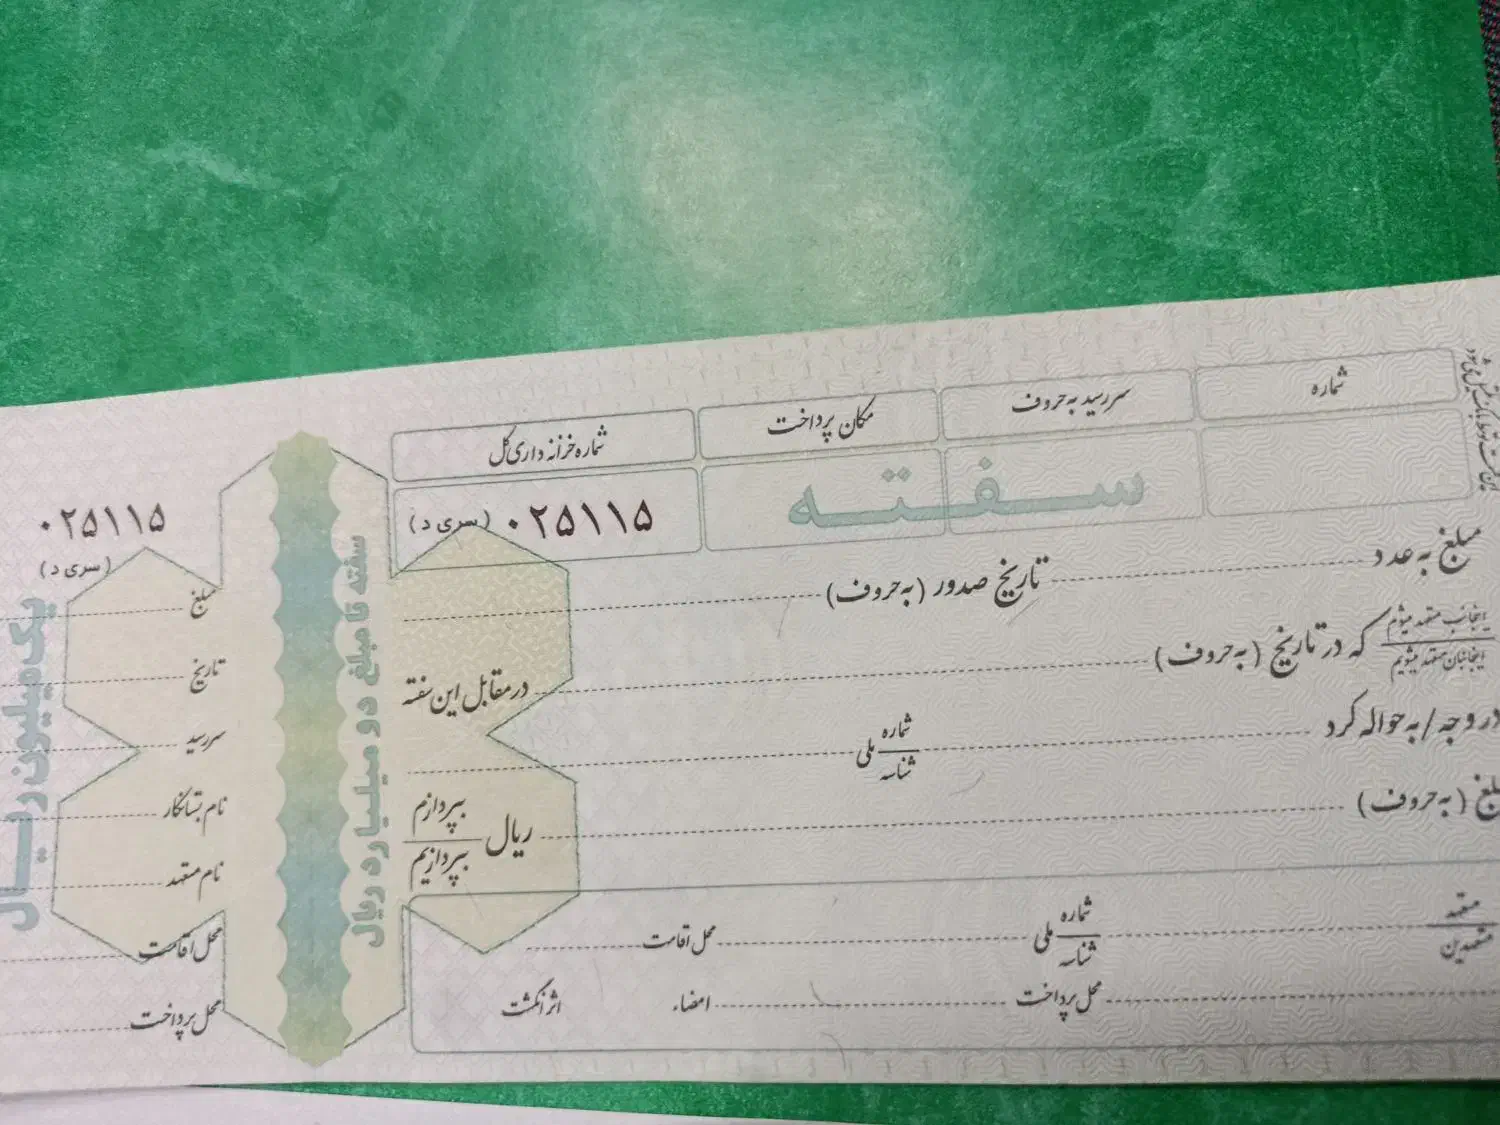 شماره
سررسید به حروف
مکان پرداخت
شماره خزانه داری کل
سفته
۰۲۵۱۱۵ (سری د)
مبلغ به عدد
تاریخ صدور (به حروف)
اینجانب متعهد میشوم
اینجانبان متعهد میشویم
که در تاریخ (به حروف)
در مقابل این سفته
در وجه / به حواله کرد
شماره
شناسه
ملی
مبلغ (به حروف)
ریال
بپردازم
بپردازیم
متعهد
متعهدین
شماره
شناسه
ملی
محل اقامت
محل پرداخت
امضاء
اثر انگشت
سفته تا مبلغ دو میلیارد ریال
۰۲۵۱۱۵
(سری د)
مبلغ
تاریخ
سررسید
نام بستانکار
نام متعهد
محل اقامت
محل پرداخت
یک میلیون ریال